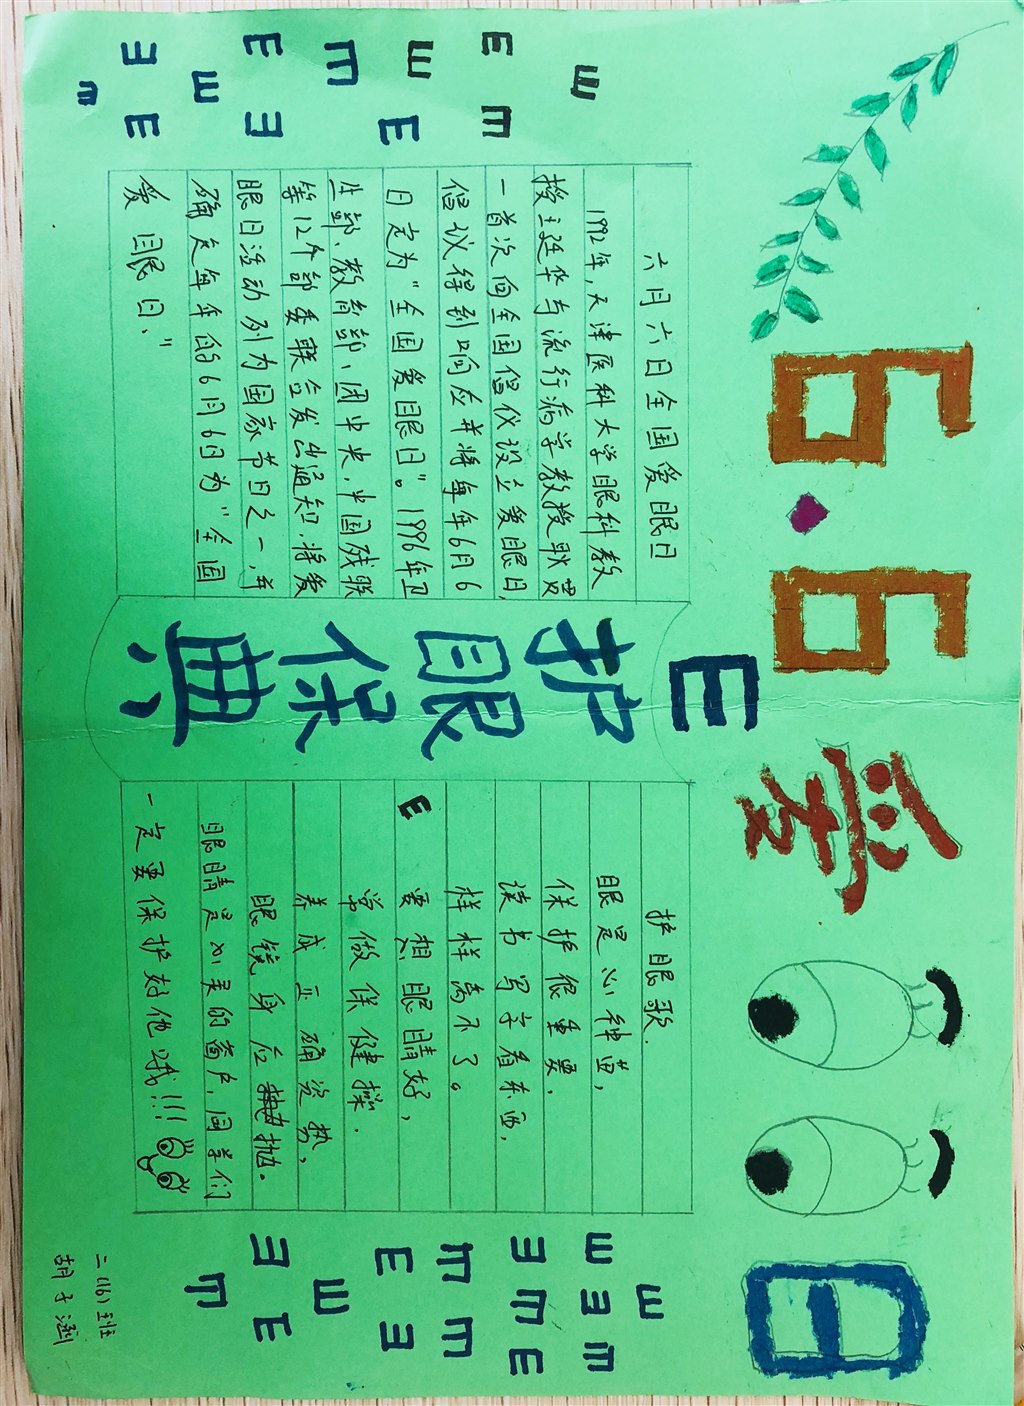 6.6爱日
六月六日全国爱眼日
1992年,天津医科大学眼科教
授王延华与流行病学教授耿贯
一首次向全国倡仪设立爱眼日,
倡议得到响应并将每年6月6
日定为"全国爱眼日"。1996年卫
生部、教育部、团中央、中国残联
等12个部委联合发出通知,将爱
眼日活动列为国家节日之一,并
确定每年的6月6日为"全国
爱眼日、"
E
护眼保典
护眼歌.
眼是心种苗,
保护很重要,
读书写字看东西,
样样离不了。
要想眼睛好,
常做保健操.
养成正确姿势,
眼镜身后抛.
眼睛是心灵的窗户,同学们
一定要保护好他哦!!!
二(16)班
胡子涵